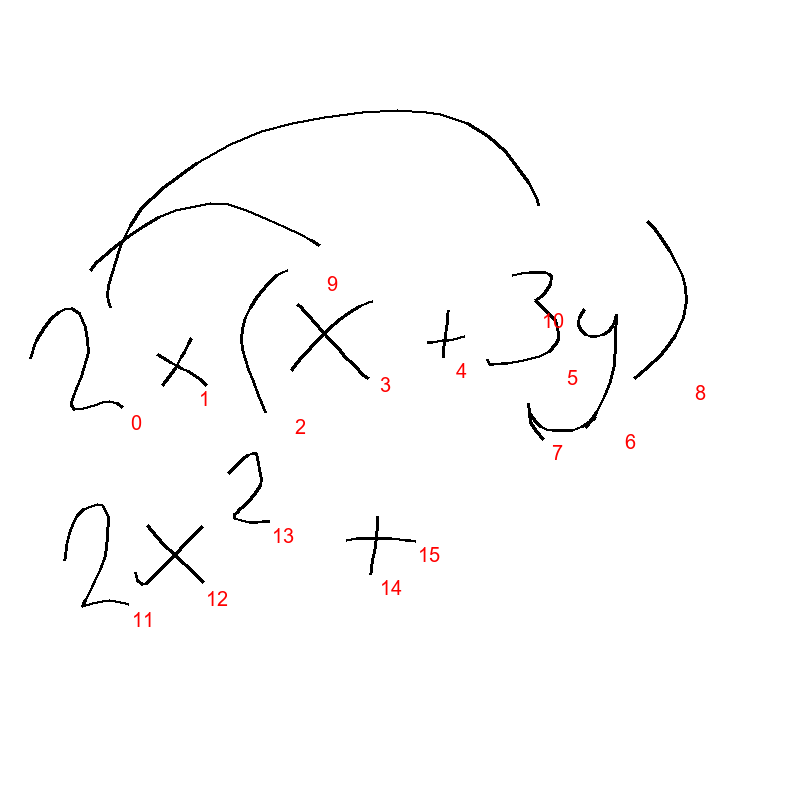 2x(x + 3y)
2x² +
0 1 2 3 4 5 6 7 8 9 10 11 12 13 14 15